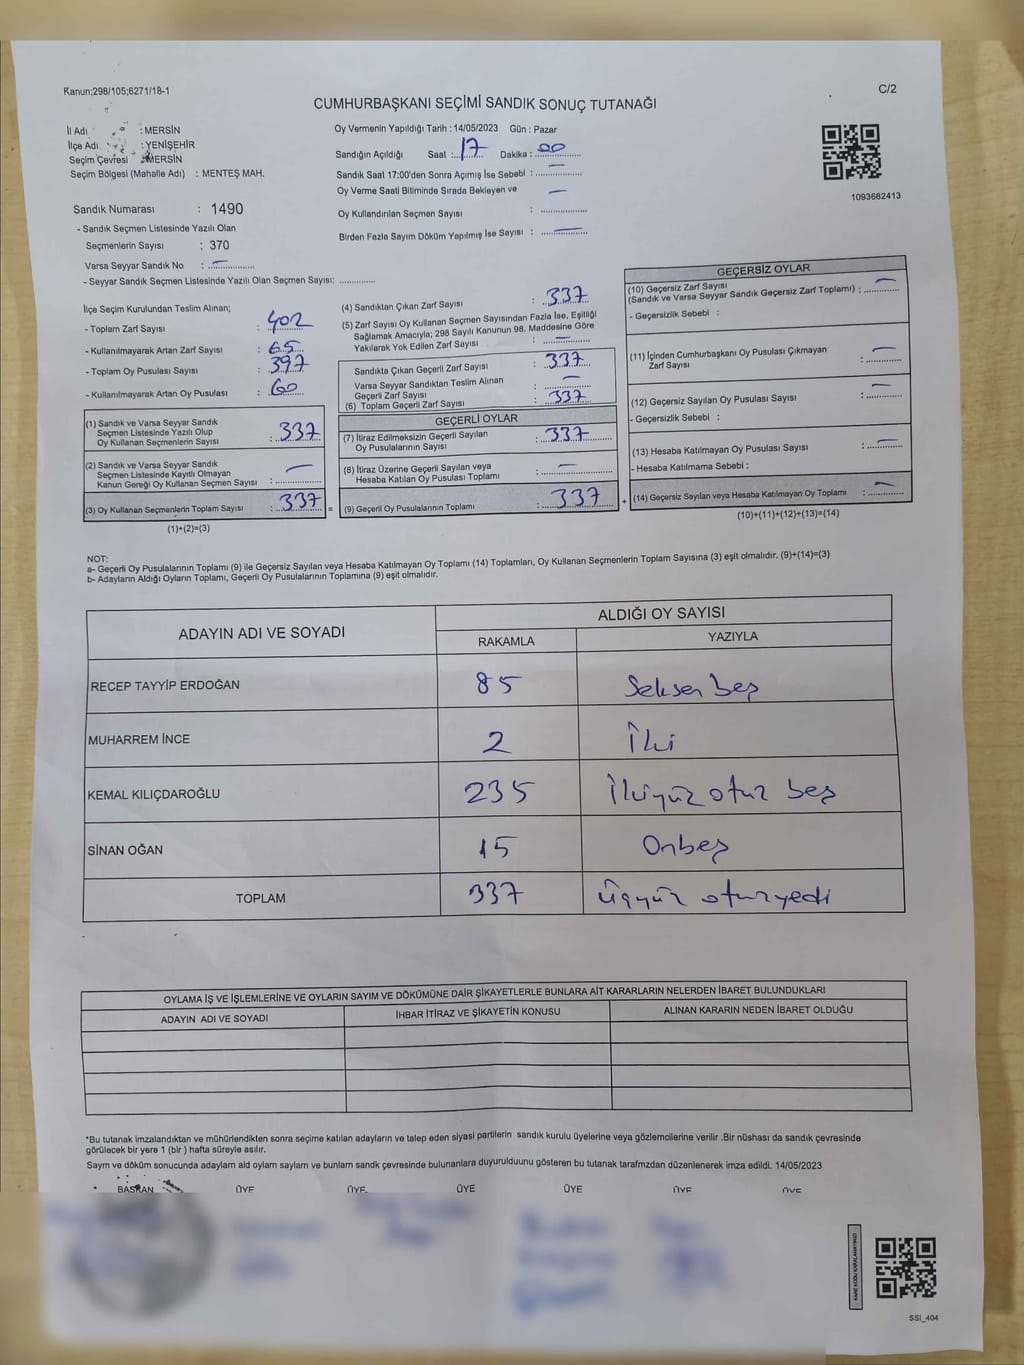 Kanun;298/105;6271/18-1
C/2
CUMHURBAŞKANI SEÇİMİ SANDIK SONUÇ TUTANAĞI
İl Adı : MERSİN
İlçe Adı : YENİŞEHİR
Seçim Çevresi : MERSİN
Seçim Bölgesi (Mahalle Adı) : MENTEŞ MAH.
Oy Vermenin Yapıldığı Tarih : 14/05/2023 Gün : Pazar
Sandığın Açıldığı Saat : 17 Dakika : 00
Sandık Saat 17:00'den Sonra Açımış İse Sebebi : —
Oy Verme Saati Bitiminde Sırada Bekleyen ve —
Oy Kullandırılan Seçmen Sayısı :
Birden Fazla Sayım Döküm Yapılmış İse Sayısı : —
1093682413
Sandık Numarası : 1490
- Sandık Seçmen Listesinde Yazılı Olan
Seçmenlerin Sayısı : 370
Varsa Seyyar Sandık No : —
- Seyyar Sandık Seçmen Listesinde Yazılı Olan Seçmen Sayısı:
İlçe Seçim Kurulundan Teslim Alınan;
- Toplam Zarf Sayısı : 402
- Kullanılmayarak Artan Zarf Sayısı : 65
- Toplam Oy Pusulası Sayısı : 397
- Kullanılmayarak Artan Oy Pusulası : 60
(1) Sandık ve Varsa Seyyar Sandık
Seçmen Listesinde Yazılı Olup
Oy Kullanan Seçmenlerin Sayısı : 337
(2) Sandık ve Varsa Seyyar Sandık
Seçmen Listesinde Kayıtlı Olmayan
Kanun Gereği Oy Kullanan Seçmen Sayısı : —
(3) Oy Kullanan Seçmenlerin Toplam Sayısı : 337
(1)+(2)=(3)
(4) Sandıktan Çıkan Zarf Sayısı : 337
(5) Zarf Sayısı Oy Kullanan Seçmen Sayısından Fazla İse, Eşitliği
Sağlamak Amacıyla; 298 Sayılı Kanunun 98. Maddesine Göre
Yakılarak Yok Edilen Zarf Sayısı : —
Sandıkta Çıkan Geçerli Zarf Sayısı : 337
Varsa Seyyar Sandıktan Teslim Alınan
Geçerli Zarf Sayısı : —
(6) Toplam Geçerli Zarf Sayısı : 337
GEÇERLİ OYLAR
(7) İtiraz Edilmeksizin Geçerli Sayılan
Oy Pusulalarının Sayısı : 337
(8) İtiraz Üzerine Geçerli Sayılan veya
Hesaba Katılan Oy Pusulası Toplamı : —
= (9) Geçerli Oy Pusulalarının Toplamı : 337
GEÇERSİZ OYLAR
(10) Geçersiz Zarf Sayısı
(Sandık ve Varsa Seyyar Sandık Geçersiz Zarf Toplamı) : —
- Geçersizlik Sebebi :
(11) İçinden Cumhurbaşkanı Oy Pusulası Çıkmayan
Zarf Sayısı : —
(12) Geçersiz Sayılan Oy Pusulası Sayısı : —
- Geçersizlik Sebebi :
(13) Hesaba Katılmayan Oy Pusulası Sayısı : —
- Hesaba Katılmama Sebebi :
+ (14) Geçersiz Sayılan veya Hesaba Katılmayan Oy Toplamı : —
(10)+(11)+(12)+(13)=(14)
NOT:
a- Geçerli Oy Pusulalarının Toplamı (9) ile Geçersiz Sayılan veya Hesaba Katılmayan Oy Toplamı (14) Toplamları, Oy Kullanan Seçmenlerin Toplam Sayısına (3) eşit olmalıdır. (9)+(14)=(3)
b- Adayların Aldığı Oyların Toplamı, Geçerli Oy Pusulalarının Toplamına (9) eşit olmalıdır.
ADAYIN ADI VE SOYADI
ALDIĞI OY SAYISI
RAKAMLA YAZIYLA
RECEP TAYYİP ERDOĞAN 85 Seksen beş
MUHARREM İNCE 2 İki
KEMAL KILIÇDAROĞLU 235 İkiyüz otuz beş
SİNAN OĞAN 15 Onbeş
TOPLAM 337 üçyüz otuzyedi
OYLAMA İŞ VE İŞLEMLERİNE VE OYLARIN SAYIM VE DÖKÜMÜNE DAİR ŞİKAYETLERLE BUNLARA AİT KARARLARIN NELERDEN İBARET BULUNDUKLARI
ADAYIN ADI VE SOYADI İHBAR İTİRAZ VE ŞİKAYETİN KONUSU ALINAN KARARIN NEDEN İBARET OLDUĞU
*Bu tutanak imzalandıktan ve mühürlendikten sonra seçime katılan adayların ve talep eden siyasi partilerin sandık kurulu üyelerine veya gözlemcilerine verilir .Bir nüshası da sandık çevresinde
görülecek bir yere 1 (bir ) hafta süreyle asılır.
Sayım ve döküm sonucunda adaylam ald oylam saylam ve bunlam sandk çevresinde bulunanlara duyurulduunu gösteren bu tutanak tarafmzdan düzenlenerek imza edildi. 14/05/2023
BAŞKAN ÜYE ÜYE ÜYE ÜYE ÜYE ÜYE
KARE KODU KARALAMAYINIZ!
SSI_404